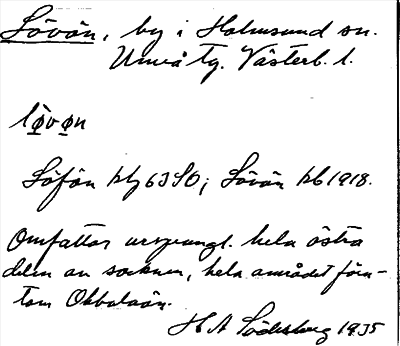 Lövön, by i Holmsund sn.
Umeå tg. Västerb. l.
lövön
Löfön kbg 63 SO; Lövön kb 1918.
Omfattar ursprungl. hela östra
delen av socknen, hela området förutom Obbolaön.
H A Söderberg 1935